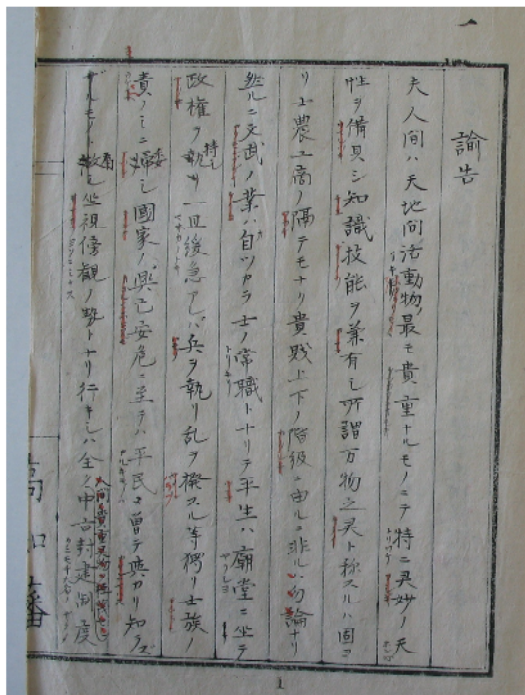 諭告
夫人間ハ天地間活動物ノ最モ貴重ナルモノニテ特ニ灵妙ノ天
性ヲ備具シ知識技能ヲ兼有シ所謂万物之灵ト称スルハ固ヨ
リ士農工商ノ隔テモナク貴賎上下ノ階級ニ由ルニ非ル勿論ナリ
然ルニ文武ノ業ハ自ツカラ士ノ常職トナリテ平生ハ廟堂ニ坐テ
政権ヲ執リ一旦緩急アレバ兵ヲ執リ乱ヲ撥スル等獨リ士族ノ
責ノミニ委シ國家ノ興亡安危ニ至テハ平民曽テ與カリ知ラズ
ザルモノトシ坐視傍観ノ勢トナリ行キシハ全ク中古封建制度
高知藩
1